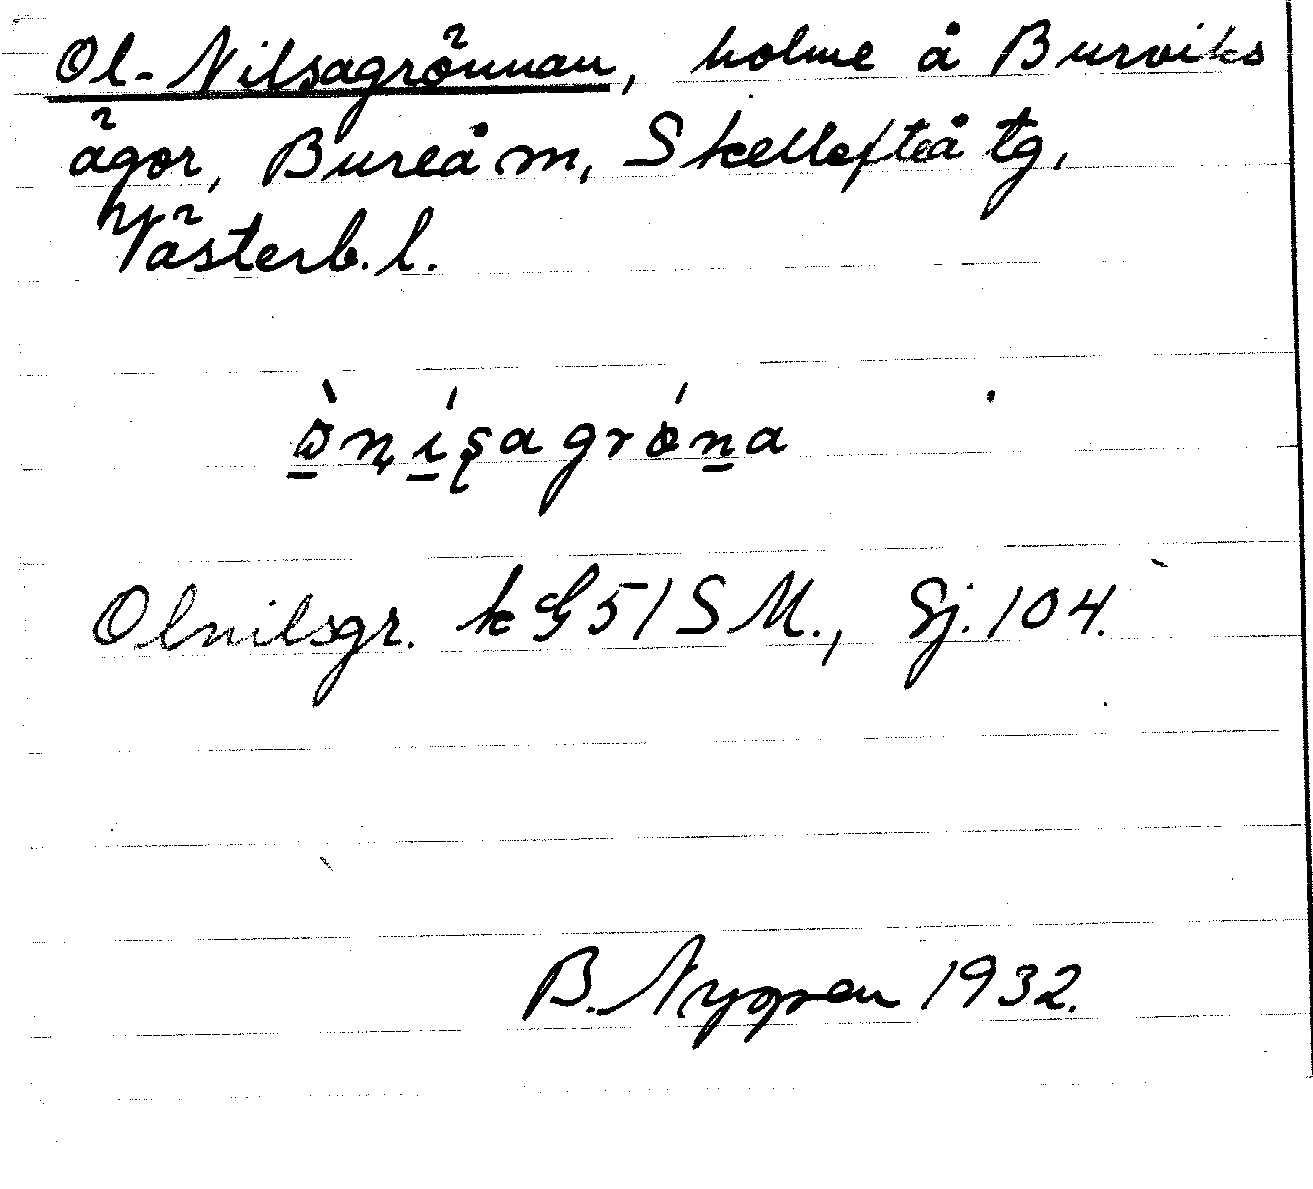 Ol-Nilsagrönnan, holme å Burviks
ägor, Bureå m, Skellefteå tg,
Västerb. l.
Olnilsgr. k G51SM., Sj. 104.
B. Nygren 1932.